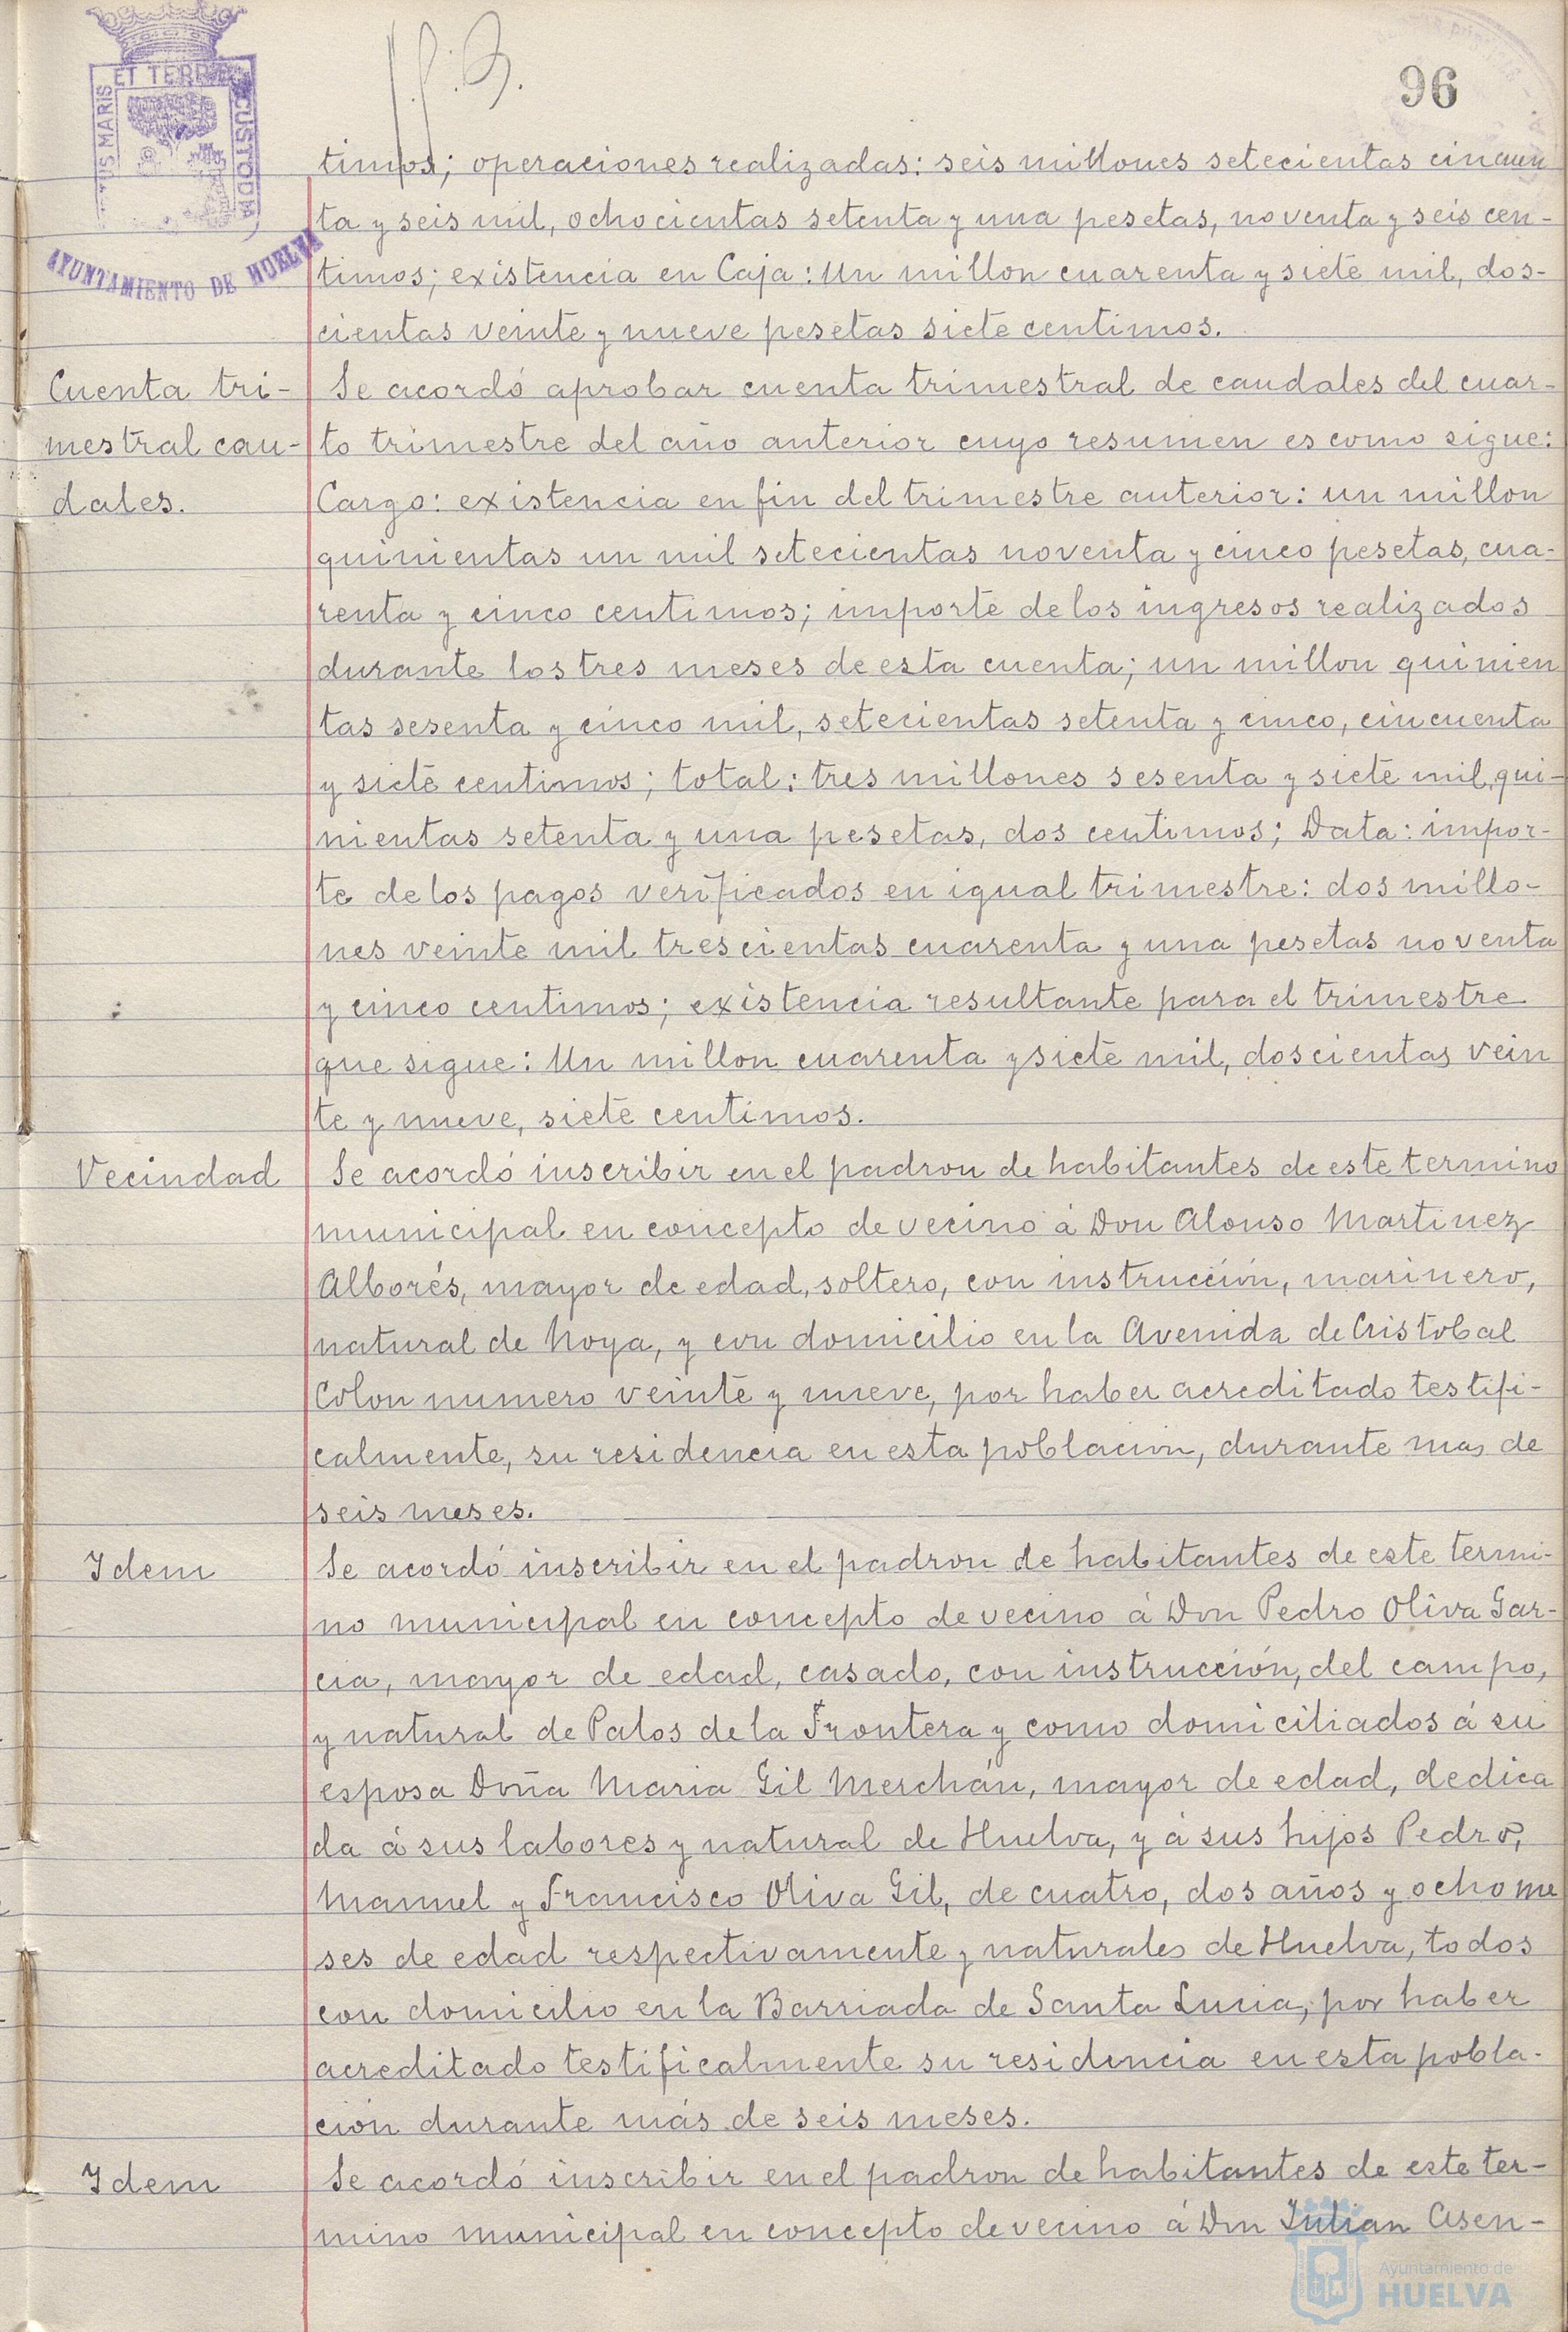 96
ET TERRE
TUS MARIS
CUSTODIA
AYUNTAMIENTO DE HUELVA
timos; operaciones realizadas: seis millones setecientas cincuen
ta y seis mil, ochocientas setenta y una pesetas, noventa y seis cen-
timos; existencia en Caja: Un millon cuarenta y siete mil, dos-
cientas veinte y nueve pesetas siete centimos.
Cuenta tri-
mestral cau-
dales.
Se acordó aprobar cuenta trimestral de caudales del cuar-
to trimestre del año anterior cuyo resumen es como sigue:
Cargo: existencia en fin del trimestre anterior: un millon
quinientas un mil setecientas noventa y cinco pesetas, cua-
renta y cinco centimos; importe de los ingresos realizados
durante los tres meses de esta cuenta; un millon quinien
tas sesenta y cinco mil, setecientas setenta y cinco, cincuenta
y siete centimos; total: tres millones sesenta y siete mil, qui-
nientas setenta y una pesetas, dos centimos; Data: impor-
te de los pagos verificados en igual trimestre: dos millo-
nes veinte mil trescientas cuarenta y una pesetas noventa
y cinco centimos; existencia resultante para el trimestre
que sigue: Un millon cuarenta y siete mil, doscientas vein
te y nueve, siete centimos.
Vecindad
Se acordó inscribir en el padron de habitantes de este termino
municipal en concepto de vecino á Don Alonso Martinez
Alborés, mayor de edad, soltero, con instrucción, marinero,
natural de Noya, y con domicilio en la Avenida de Cristobal
Colon numero veinte y nueve, por haber acreditado testifi-
calmente, su residencia en esta poblacion, durante mas de
seis meses.
Idem
Se acordó inscribir en el padron de habitantes de este termi-
no municipal en concepto de vecino á Don Pedro Oliva Gar-
cia, mayor de edad, casado, con instrucción, del campo,
y natural de Palos de la Frontera y como domiciliados á su
esposa Doña Maria Gil Merchán, mayor de edad, dedica
da á sus labores y natural de Huelva, y á sus hijos Pedro,
Manuel y Francisco Oliva Gil, de cuatro, dos años y ocho me
ses de edad respectivamente y naturales de Huelva, todos
con domicilio en la Barriada de Santa Lucia, por haber
acreditado testificalmente su residencia en esta pobla-
ción durante más de seis meses.
Idem
Se acordó inscribir en el padron de habitantes de este ter-
mino municipal en concepto de vecino á Don Julian Asen-
Ayuntamiento de
HUELVA